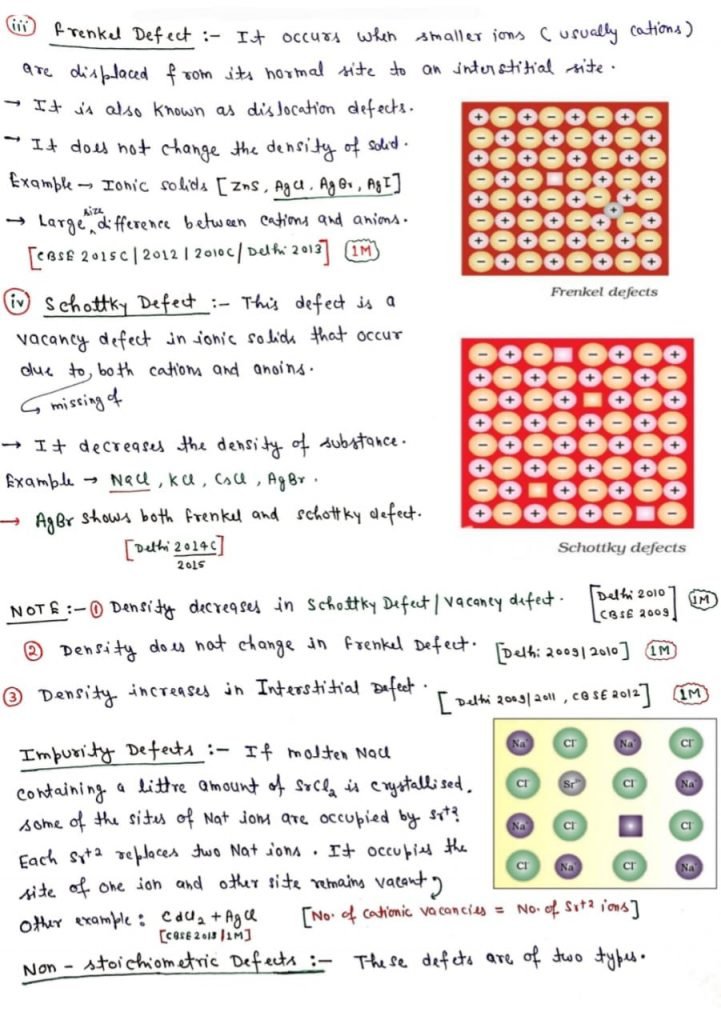 (iii) Frenkel Defect :- It occurs when smaller ions (usually cations)
are displaced from its normal site to an interstitial site.
→ It is also known as dislocation defects.
→ It does not change the density of solid.
Example → Ionic solids [ZnS, AgCl, AgBr, AgI]
→ Large size difference between cations and anions.
[CBSE 2015C | 2012 | 2010C / Delhi 2013] (1M)
Frenkel defects
(iv) Schottky Defect :- This defect is a
vacancy defect in ionic solids that occur
due to, both cations and anoins.
missing of
→ It decreases the density of substance.
Example → NaCl, KCl, CsCl, AgBr.
→ AgBr shows both frenkel and schottky defect.
[Delhi 2014C]
2015
Schottky defects
NOTE :- ① Density decreases in Schottky Defect / Vacancy defect. [Delhi 2010 (1M)
CBSE 2009]
② Density does not change in Frenkel Defect. [Delhi 2009 | 2010] (1M)
③ Density increases in Interstitial Defect. [Delhi 2009 | 2011, CBSE 2012] (1M)
Impurity Defects :- If molten NaCl
containing a littre amount of SrCl₂ is crystallised.
some of the sites of Na+ ions are occupied by Sr⁺².
Each Sr⁺² replaces two Na+ ions. It occupies the
site of one ion and other site remains vacant
Na⁺ Cl⁻ Na⁺ Cl⁻
Cl⁻ Sr²⁺ Cl⁻ Na⁺
Na⁺ Cl⁻ Cl⁻
Cl⁻ Na⁺ Cl⁻ Na⁺
Other example : CdCl₂ + AgCl [No. of cationic vacancies = No. of Sr⁺² ions]
[CBSE 2013 / 1M]
Non-stoichiometric Defects :- These defcts are of two types.